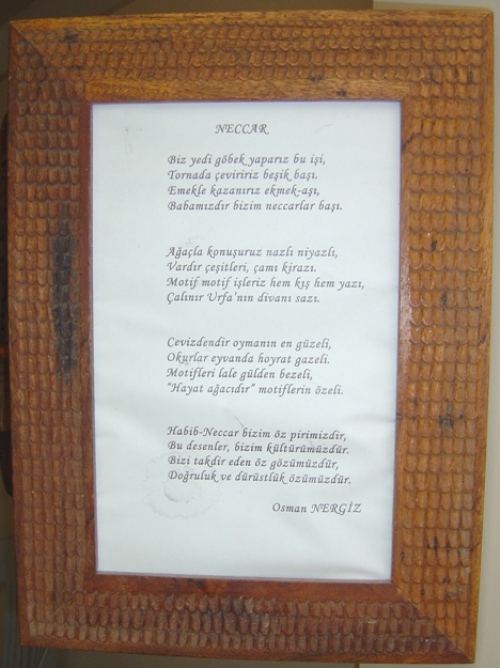 NECCAR
Biz yedi göbek yaparız bu işi,
Tornada çeviririz beşik başı.
Emekle kazanırız ekmek-aşı,
Babamızdır bizim neccarlar başı.
Ağaçla konuşuruz nazlı niyazlı,
Vardır çeşitleri, çamı kirazı.
Motif motif işleriz hem kış hem yazı,
Çalınır Urfa'nın divanı sazı.
Cevizdendir oymanın en güzeli,
Okurlar eyvanda hoyrat gazeli.
Motifleri lale gülden bezeli,
"Hayat ağacıdır" motiflerin özeli.
Habib-Neccar bizim öz pirimizdir,
Bu desenler, bizim kültürümüzdür.
Bizi takdir eden öz gözümüzdür,
Doğruluk ve dürüstlük özümüzdür.
Osman NERGİZ